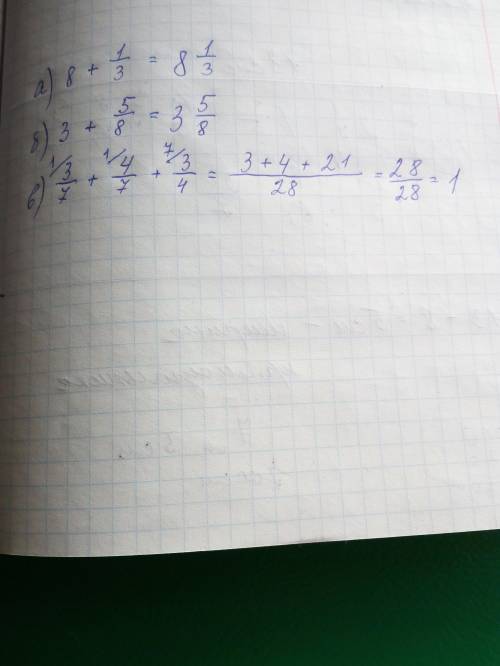 а) 8 + 1/3 = 8 1/3
б) 3 + 5/8 = 3 5/8
в) 1/ 3/7 + 1/ 4/7 + 7/ 3/4 = (3 + 4 + 21)/28 = 28/28 = 1